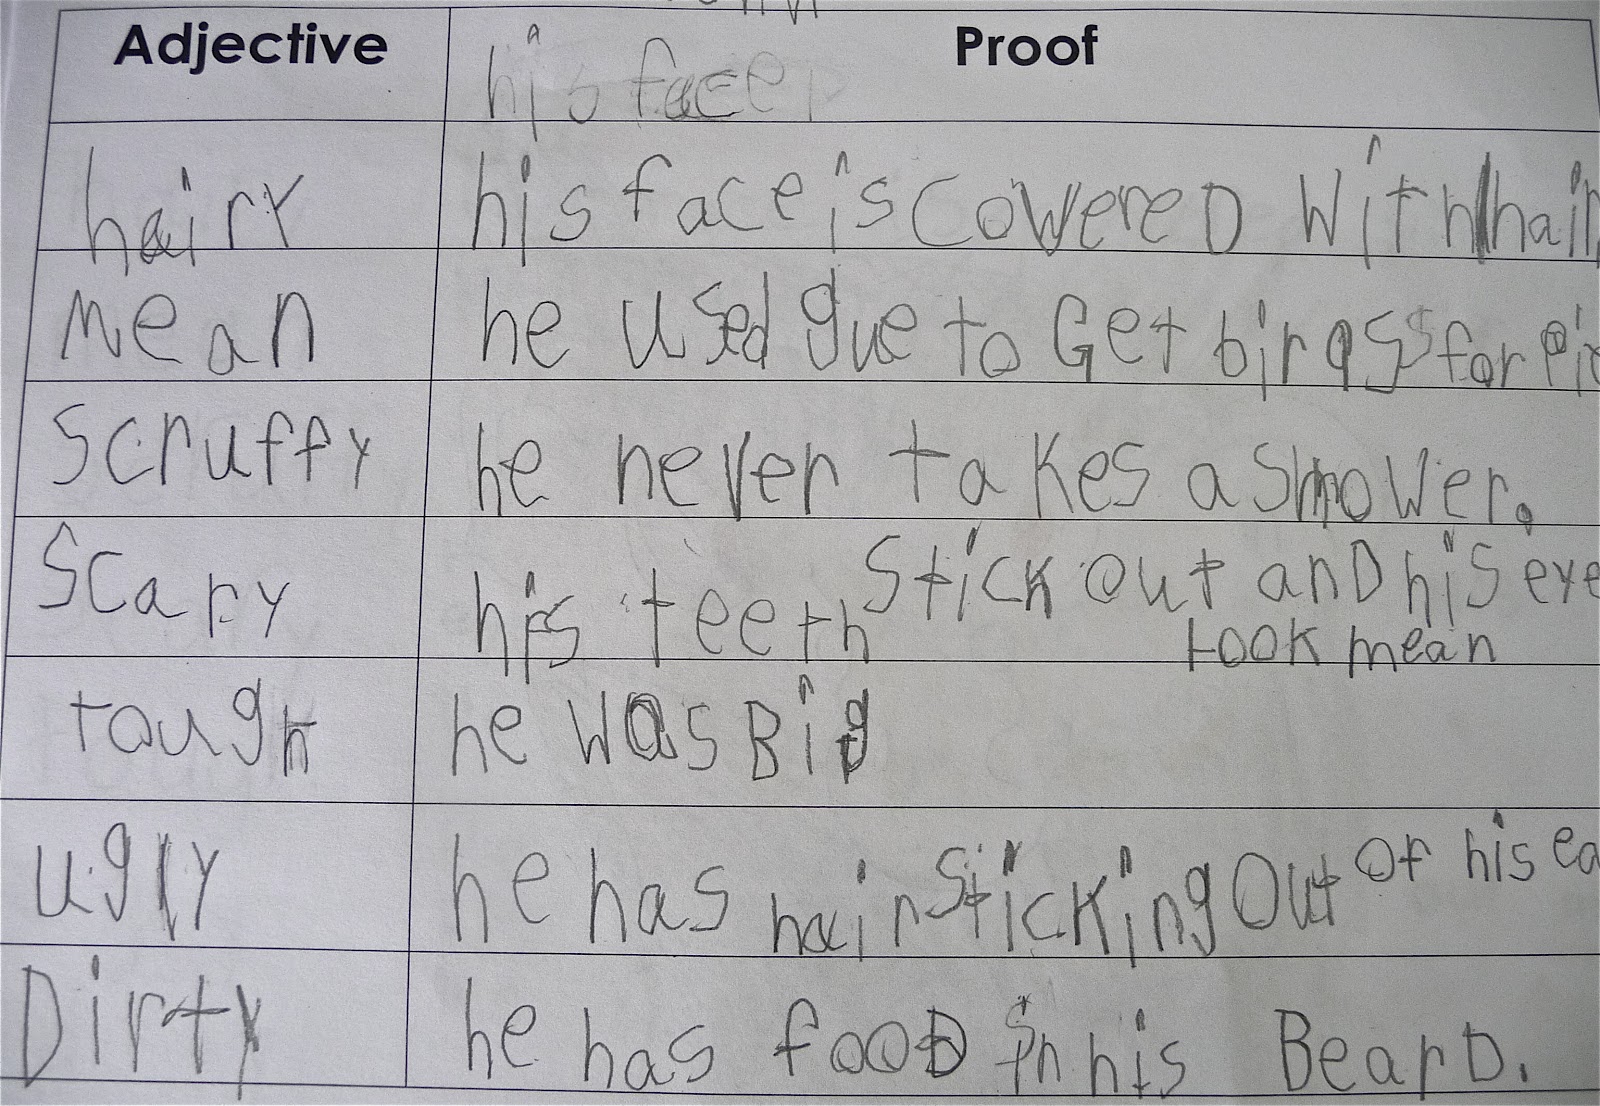 Adjective Proof
his face
hairy his face is cowered with hair
mean he used glue to Get birds for
Scruffy he never takes a Shower.
Scary his teeth Stick out and his eye
look mean
tough he was Big
ugly he has hair sticking out of his ea
Dirty he has food in his Beard.